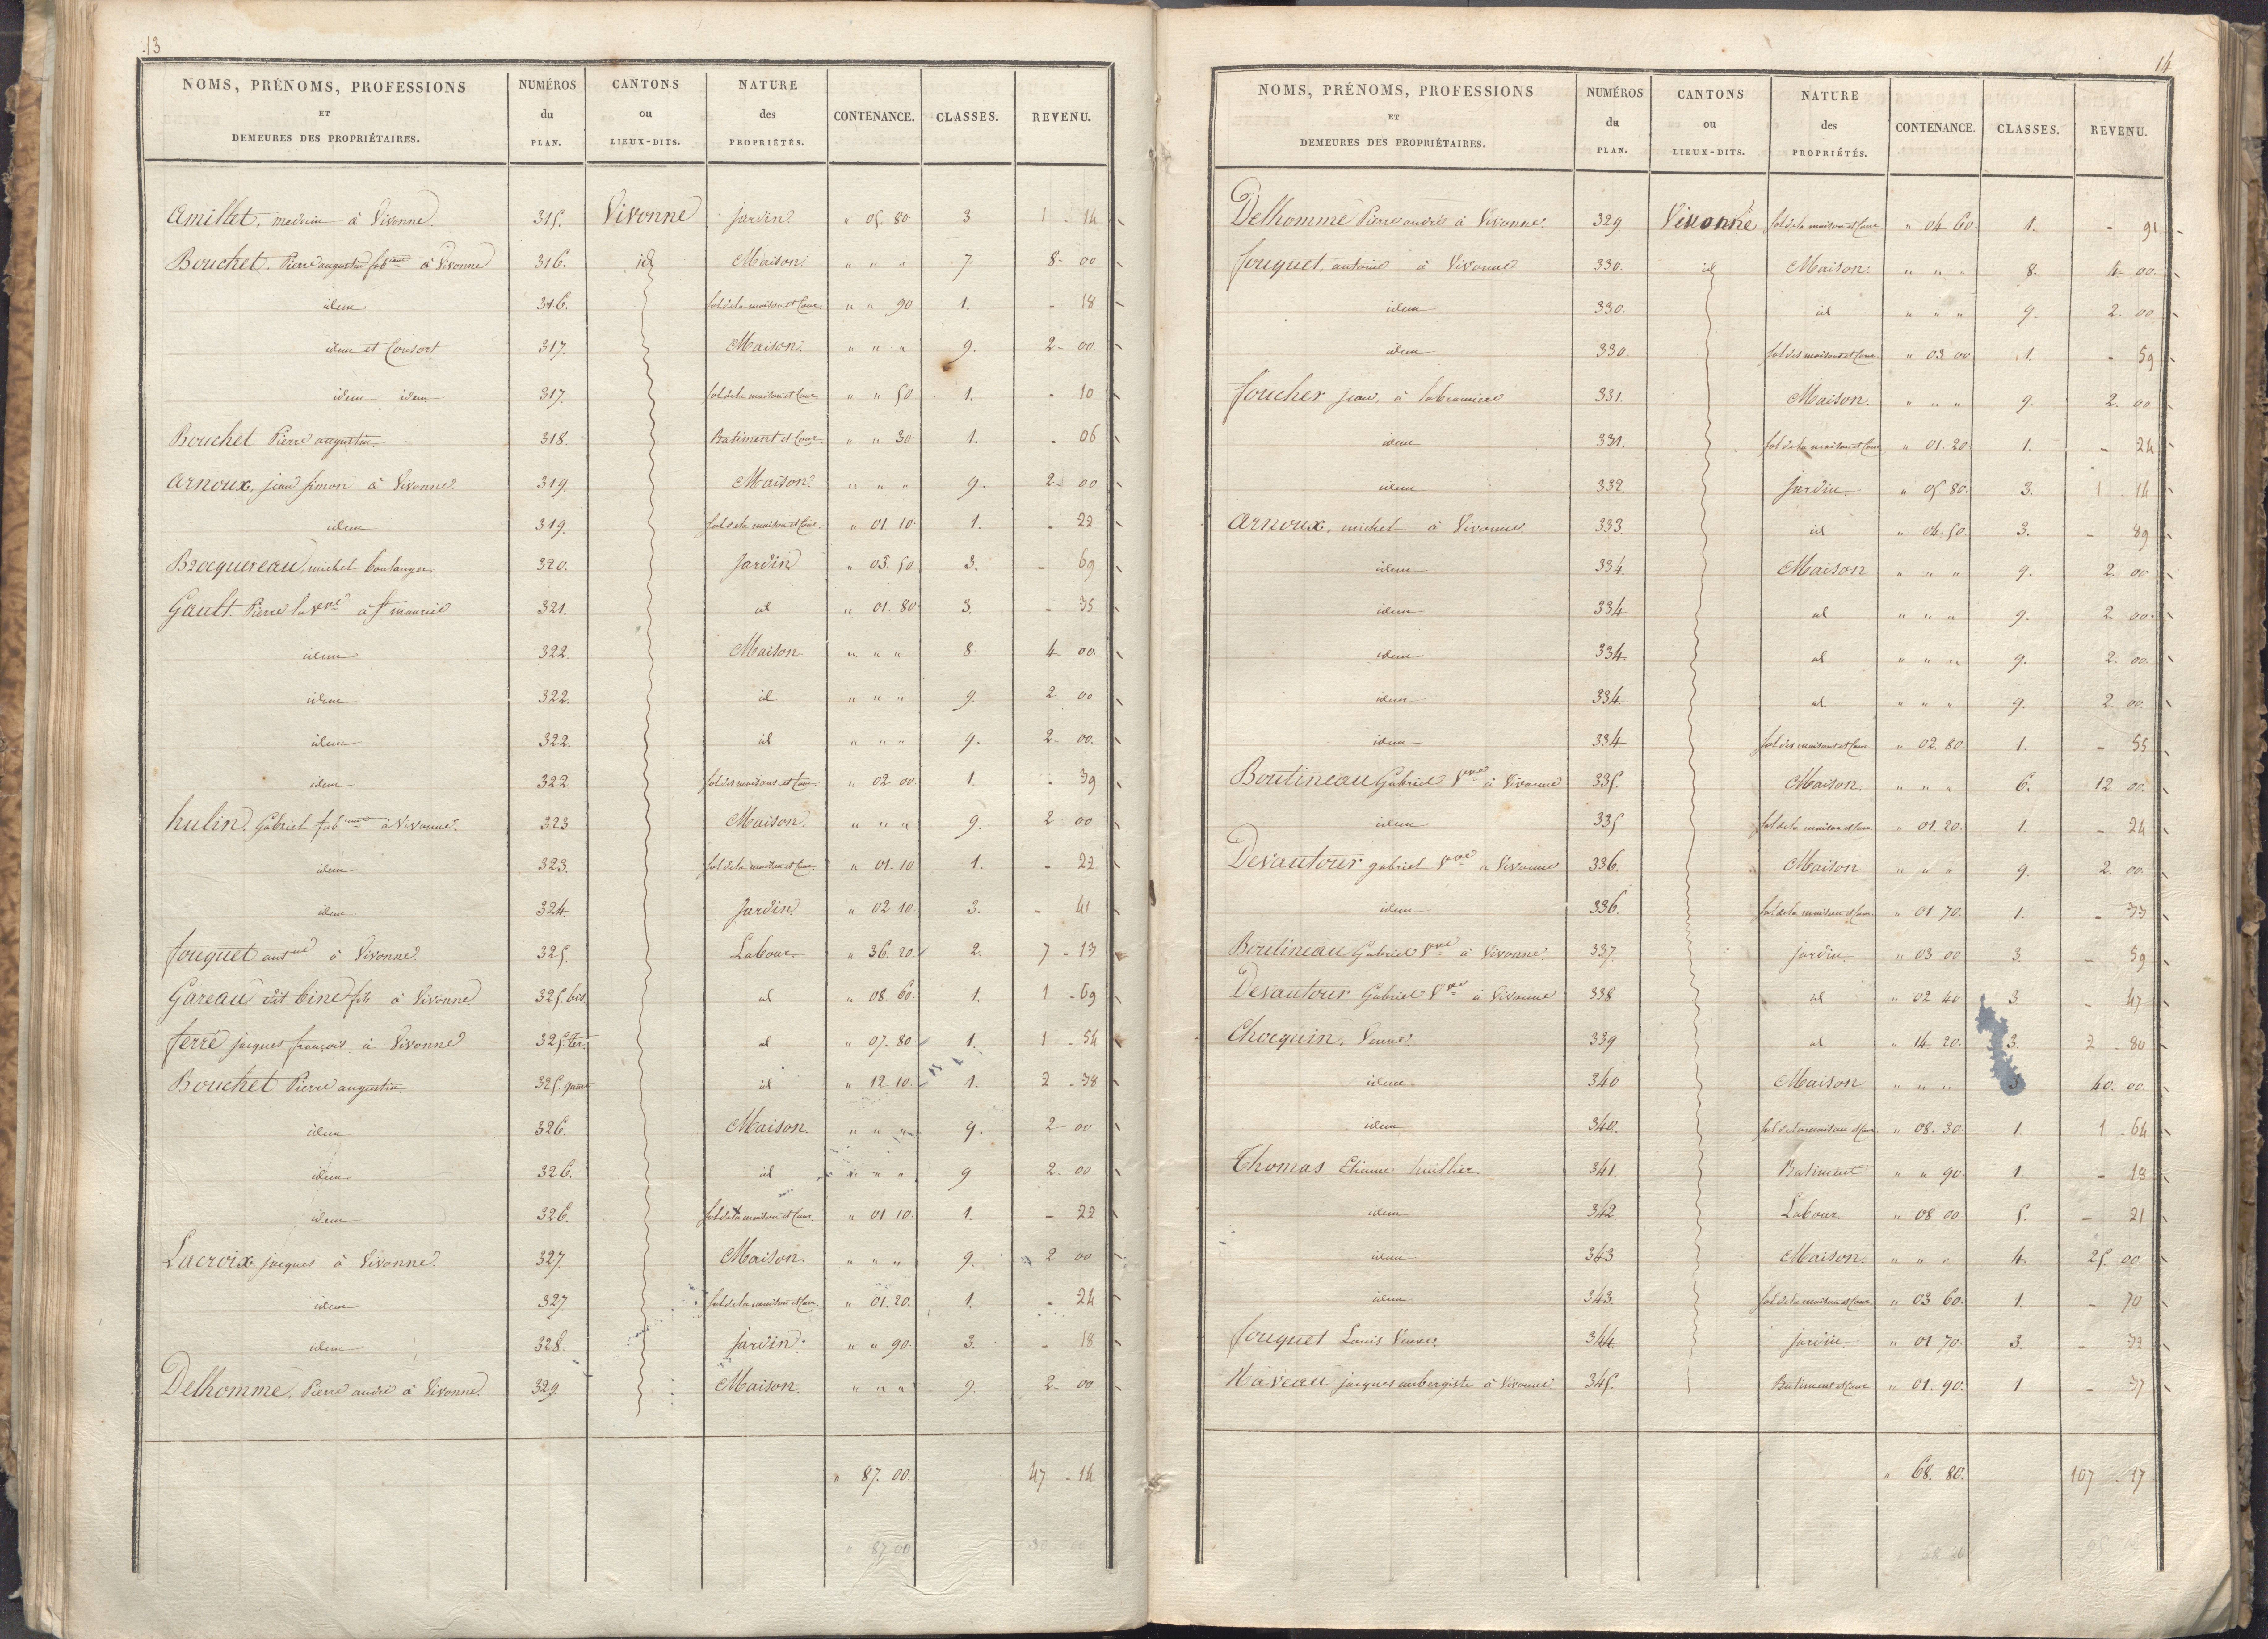 13
NOMS, PRÉNOMS, PROFESSIONS ET DEMEURES DES PROPRIÉTAIRES. NUMÉROS du PLAN. CANTONS ou LIEUX-DITS. NATURE des PROPRIÉTÉS. CONTENANCE. CLASSES. REVENU.
Amillet, medecin à Vivonne. 315. Vivonne jardin " 05. 80 3 1 - 14
Bouchet, Pierre augustin fab à Vivonne 316. id Maison " " " 7 8 - 00
idem 316. sol de la maison et Cour " " 90 1. - 18
idem et Consort 317. Maison " " " 9. 2 - 00
idem idem 317. sol de la maison et Cour " " 50 1. - 10
Bouchet Pierre augustin 318. Batiment et Cour " " 30 1. - 06
Arnoux, jean simon à Vivonne. 319. Maison " " " 9. 2 00
idem 319. sol de la maison et Cour " 01. 10 1. - 22
Brocquereau, michel boulanger. 320. jardin " 03. 50 3. - 69
Gault Pierre la Vve à St maurice. 321. id " 01. 80 3. - 35
idem 322. Maison " " " 8. 4 00
idem 322. id " " " 9. 2 00
idem 322. id " " " 9. 2 00.
idem 322. sol des maisons et Cour " 02 00 1. - 39
hulin. Gabriel fab à Vivonne. 323 Maison " " " 9. 2 00
idem 323. sol de la maison et Cour " 01. 10 1. - 22
idem 324. Jardin " 02 10 3. - 41
fouquet ant à Vivonne 325. Labour " 36. 20 2. 7 - 13
Gareau dit biné fils à Vivonne 325. bis. id " 08. 60 1. 1 - 69
ferré jacques françois à Vivonne 325. ter. id " 07. 80 1. 1 - 54
Bouchet Pierre augustin 325. id " 12 10 1. 2 - 38
idem 326. Maison. " " " 9. 2 00
idem 326. id " " " 9 2 00
idem 326. sol de la maison et Cour " 01 10 1. - 22
Lacroix jacques à Vivonne. 327. Maison " " " 9. 2 00
idem 327. sol de la maison et Cour " 01. 20. 1. - 24
idem 328. jardin " " 90 3. - 18
Delhomme. Pierre andré à Vivonne. 329. Maison. " " " 9. 2 00
" 87. 00. 47 - 14
" 87 00
14
NOMS, PRÉNOMS, PROFESSIONS ET DEMEURES DES PROPRIÉTAIRES. NUMÉROS du PLAN. CANTONS ou LIEUX-DITS. NATURE des PROPRIÉTÉS. CONTENANCE. CLASSES. REVENU.
Delhomme Pierre andré à Vivonne. 329. Vivonne sol de la maison et Cour " 04 60 1. - 91
fouquet, antoine à Vivonne 330. id Maison. " " " 8. 4 00.
idem 330. id " " " 9. 2. 00
idem 330. sol des maisons et Cour " 03 00 1. - 59
foucher jean, à 331. Maison. " " " 9. 2. 00
idem 331. sol de la maison et Cour " 01. 20 1. - 24
idem 332. Jardin " 05. 80. 3. 1 - 14
Arnoux, michel à Vivonne. 333 id " 04. 50. 3. - 89
idem 334. Maison " " " 9. 2. 00
idem 334 id " " " 9. 2 00.
idem 334. id " " " 9. 2. 00
idem 334 id " " " 9. 2 00.
idem 334 sol des maisons et Cour " 02. 80 1. - 55
Boutineau Gabriel Vve à Vivonne 335. Maison. " " " 6. 12 00.
idem 335 sol de la maison et Cour " 01. 20. 1. - 24
Devautour gabriel Vve à Vivonne 336. Maison " " " 9. 2. 00
idem 336. sol de la maison et Cour " 01 70. 1. - 33
Boutineau Gabriel Vve à Vivonne. 337. jardin. " 03 00 3. - 59
Devautour Gabriel Vve à Vivonne 338 id " 02 40 3 - 47
Chocquin. Veuve. 339 id " 14 20. 3. 2 - 80
idem 340 Maison " " " 3 40. 00.
idem 340. sol de la maison et Cour " 08. 30. 1. 1 - 64
Thomas Etienne huillier 341. Batiment " " 90. 1. - 18
idem 342 Labour " 08 00 5. - 21
idem 343 Maison. " " " 4. 25 00.
idem 343. sol de la maison et Cour " 03 60. 1. - 70
fouquet Louis Veuve. 344. jardin " 01 70. 3. - 33
Naveau jacques aubergiste à Vivonne 345. Batiment et Cour " 01. 90. 1. - 37
" 68. 80. 107 - 17
68 80